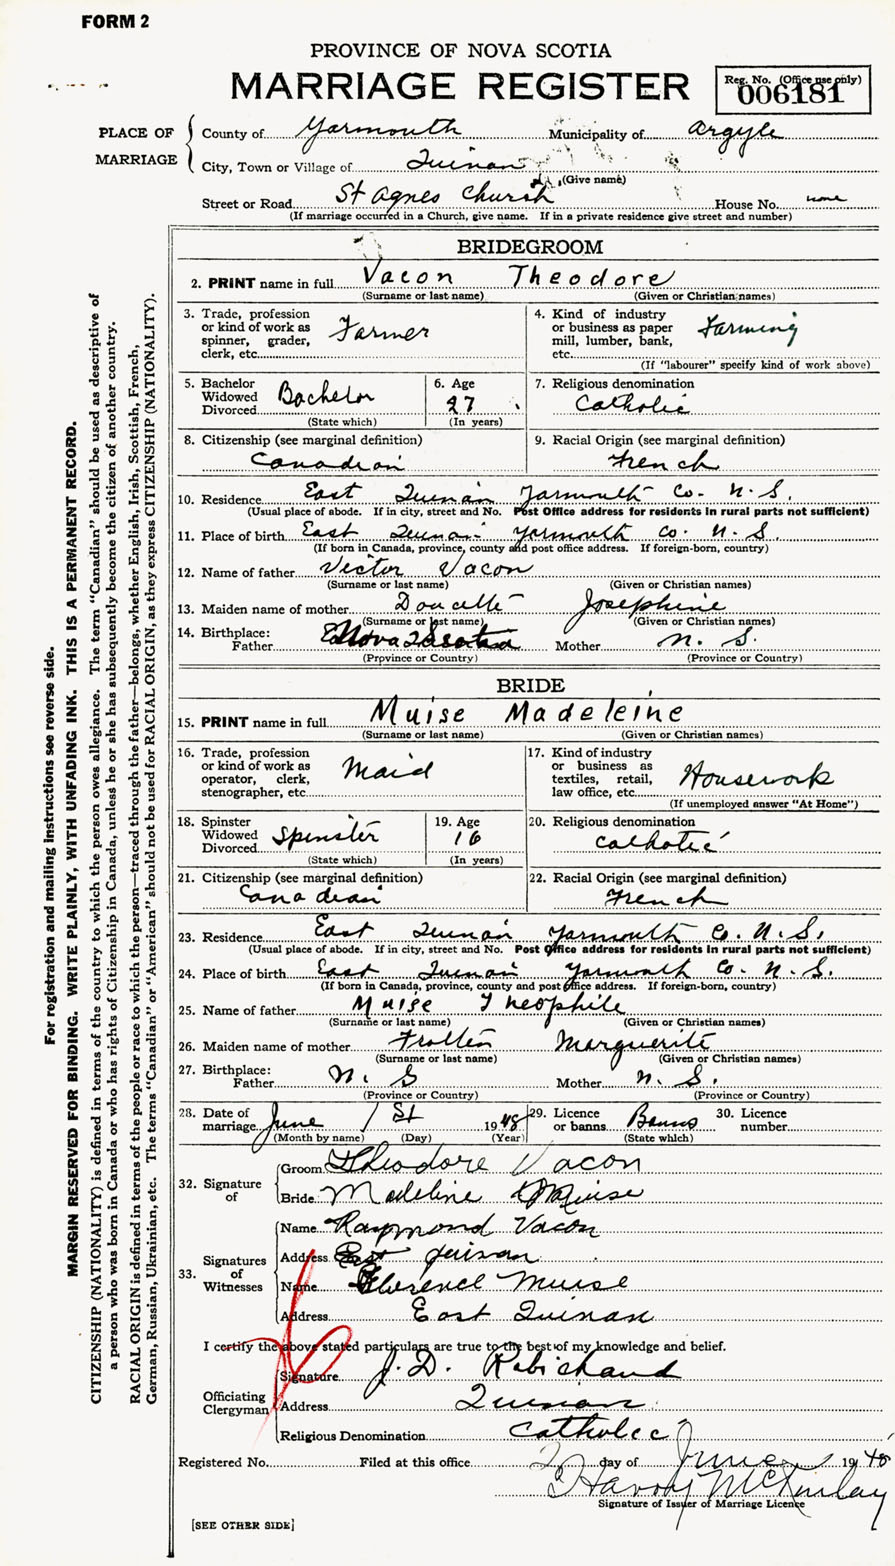 FORM 2
PROVINCE OF NOVA SCOTIA
MARRIAGE REGISTER
Reg. No. (Office use only)
006181
PLACE OF MARRIAGE
County of Yarmouth Municipality of Argyle
City, Town or Village of Quinan
(Give name)
Street or Road St Agnes Church House No. none
(If marriage occurred in a Church, give name. If in a private residence give street and number)
BRIDEGROOM
2. PRINT name in full Vacon Theodore
(Surname or last name) (Given or Christian names)
3. Trade, profession or kind of work as spinner, grader, clerk, etc. Farmer
4. Kind of industry or business as paper mill, lumber, bank, etc. Farming
(If "labourer" specify kind of work above)
5. Bachelor Widowed Divorced Bachelor
(State which)
6. Age 27
(In years)
7. Religious denomination
Catholic
8. Citizenship (see marginal definition)
Canadian
9. Racial Origin (see marginal definition)
French
10. Residence East Quinan Yarmouth Co. N.S.
(Usual place of abode. If in city, street and No. Post Office address for residents in rural parts not sufficient)
11. Place of birth East Quinan Yarmouth Co. N.S.
(If born in Canada, province, county and post office address. If foreign-born, country)
12. Name of father Victor Vacon
(Surname or last name) (Given or Christian names)
13. Maiden name of mother Doucette Josephine
(Surname or last name) (Given or Christian names)
14. Birthplace:
Father Nova Scotia Mother N. S.
(Province or Country) (Province or Country)
BRIDE
15. PRINT name in full Muise Madeleine
(Surname or last name) (Given or Christian names)
16. Trade, profession or kind of work as operator, clerk, stenographer, etc. Maid
17. Kind of industry or business as textiles, retail, law office, etc. Housework
(If unemployed answer "At Home")
18. Spinster Widowed Divorced Spinster
(State which)
19. Age 16
(In years)
20. Religious denomination
Catholic
21. Citizenship (see marginal definition)
Canadian
22. Racial Origin (see marginal definition)
French
23. Residence East Quinan Yarmouth Co. N.S.
(Usual place of abode. If in city, street and No. Post Office address for residents in rural parts not sufficient)
24. Place of birth East Quinan Yarmouth Co. N.S.
(If born in Canada, province, county and post office address. If foreign-born, country)
25. Name of father Muise Theophile
(Surname or last name) (Given or Christian names)
26. Maiden name of mother Marguerite
(Surname or last name) (Given or Christian names)
27. Birthplace:
Father N. S Mother N. S.
(Province or Country) (Province or Country)
28. Date of marriage June 1st 1948
(Month by name) (Day) (Year)
29. Licence or banns Banns
(State which)
30. Licence number
32. Signature of
Groom Theodore Vacon
Bride Madeline Muise
33. Signatures of Witnesses
Name Raymond Vacon
Address East Quinan
Name Florence Muise
Address East Quinan
I certify the above stated particulars are true to the best of my knowledge and belief.
Officiating Clergyman
Signature J. D. Robichaud
Address Quinan
Religious Denomination Catholic
Registered No. Filed at this office 2 day of June 1948
Harvey McKinlay
Signature of Issuer of Marriage Licence
[SEE OTHER SIDE]
For registration and mailing instructions see reverse side.
MARGIN RESERVED FOR BINDING. WRITE PLAINLY, WITH UNFADING INK. THIS IS A PERMANENT RECORD.
CITIZENSHIP (NATIONALITY) is defined in terms of the country to which the person owes allegiance. The term "Canadian" should be used as descriptive of
a person who was born in Canada or who has rights of Citizenship in Canada, unless he or she has subsequently become the citizen of another country.
RACIAL ORIGIN is defined in terms of the people or race to which the person—traced through the father—belongs, whether English, Irish, Scottish, French,
German, Russian, Ukrainian, etc. The terms "Canadian" or "American" should not be used for RACIAL ORIGIN, as they express CITIZENSHIP (NATIONALITY).